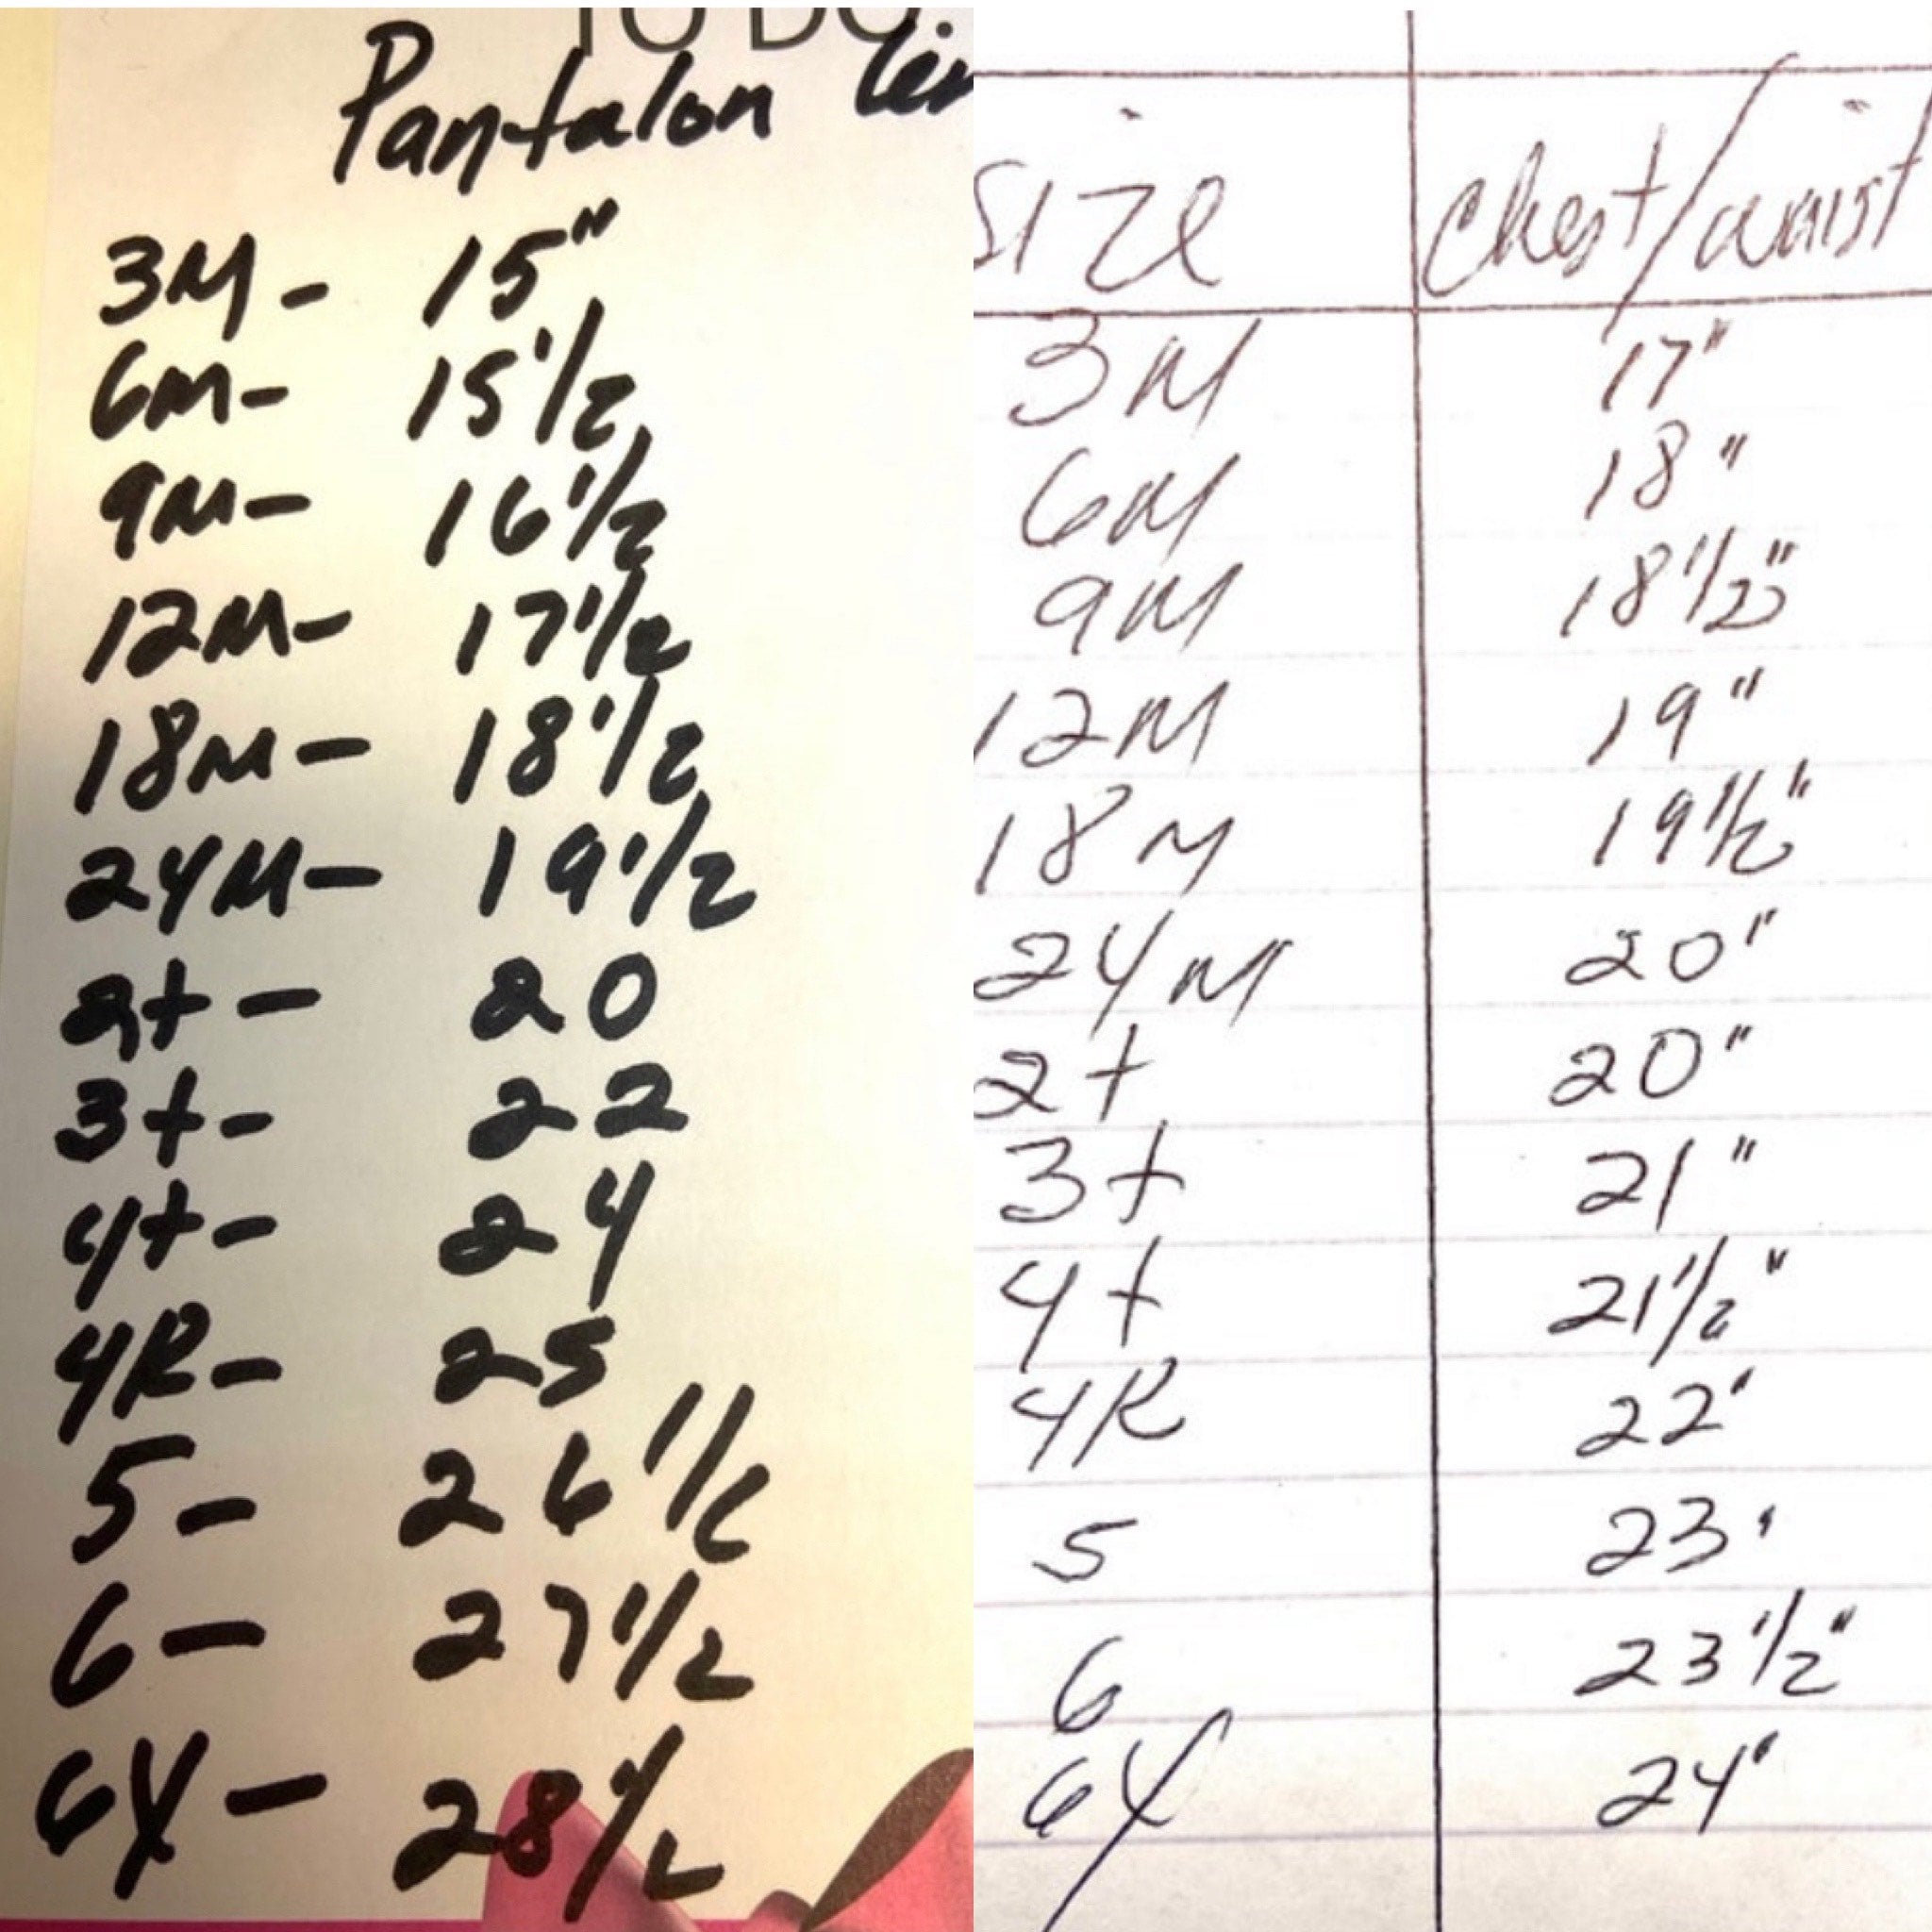 TO DO:
Pantalon len
3M - 15"
6M - 15 1/2
9M - 16 1/2
12M - 17 1/2
18M - 18 1/2
24M - 19 1/2
2t - 20
3t - 22
4t - 24
4R - 25
5 - 26 1/2
6 - 27 1/2
6X - 28 1/2
size chest/waist
3M 17"
6M 18"
9M 18 1/2"
12M 19"
18M 19 1/2"
24M 20"
2t 20"
3t 21"
4t 21 1/2"
4R 22"
5 23"
6 23 1/2"
6X 24"